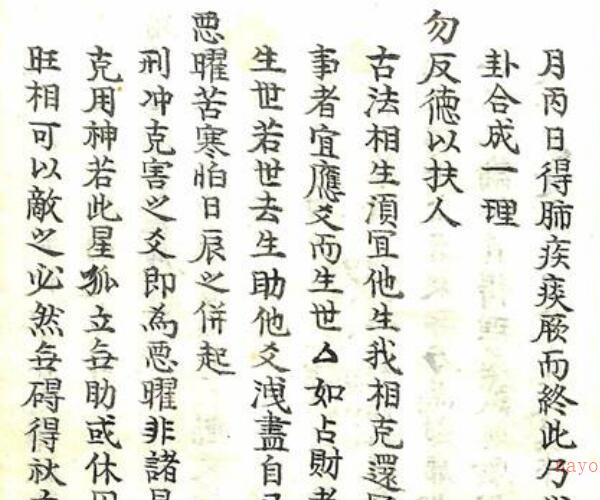 月丙日得肺疾痰厥而終此乃
卦合成一理
勿反德以扶人
古法相生湏冝他生我相克還
事者宜應爻而生世△如占財者
生世若世去生助他爻洩盡自
惡曜苦寒怕日辰之併起
刑冲克害之爻即為惡曜非諸星
克用神若此星孤立无助或休囚
旺相可以敵之必然無碍得秋
nayo